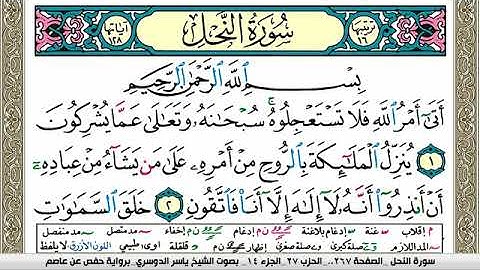 ترتيبها ١٦ سُورَةُ النَّحْلِ آياتها ١٢٨
بِسْمِ اللَّهِ الرَّحْمَٰنِ الرَّحِيمِ
أَتَىٰٓ أَمْرُ ٱللَّهِ فَلَا تَسْتَعْجِلُوهُ ۚ سُبْحَٰنَهُۥ وَتَعَٰلَىٰ عَمَّا يُشْرِكُونَ
١ يُنَزِّلُ ٱلْمَلَٰٓئِكَةَ بِٱلرُّوحِ مِنْ أَمْرِهِۦ عَلَىٰ مَن يَشَآءُ مِنْ عِبَادِهِۦٓ
أَنْ أَنذِرُوٓا۟ أَنَّهُۥ لَآ إِلَٰهَ إِلَّآ أَنَا۠ فَٱتَّقُونِ ٢ خَلَقَ ٱلسَّمَٰوَٰتِ
م إقلاب غنة إدغام بلاغنة إدغام إخفاء مد متصل مد منفصل
المد اللازم صلة كبرى صلة صغرى إظهار قلقلة طبيعي اللون الأزرق لا يلفظ
سورة النحل الصفحة ٢٦٧.. الحزب ٢٧ الجزء ١٤_ بصوت الشيخ ياسر الدوسري_ برواية حفص عن عاصم